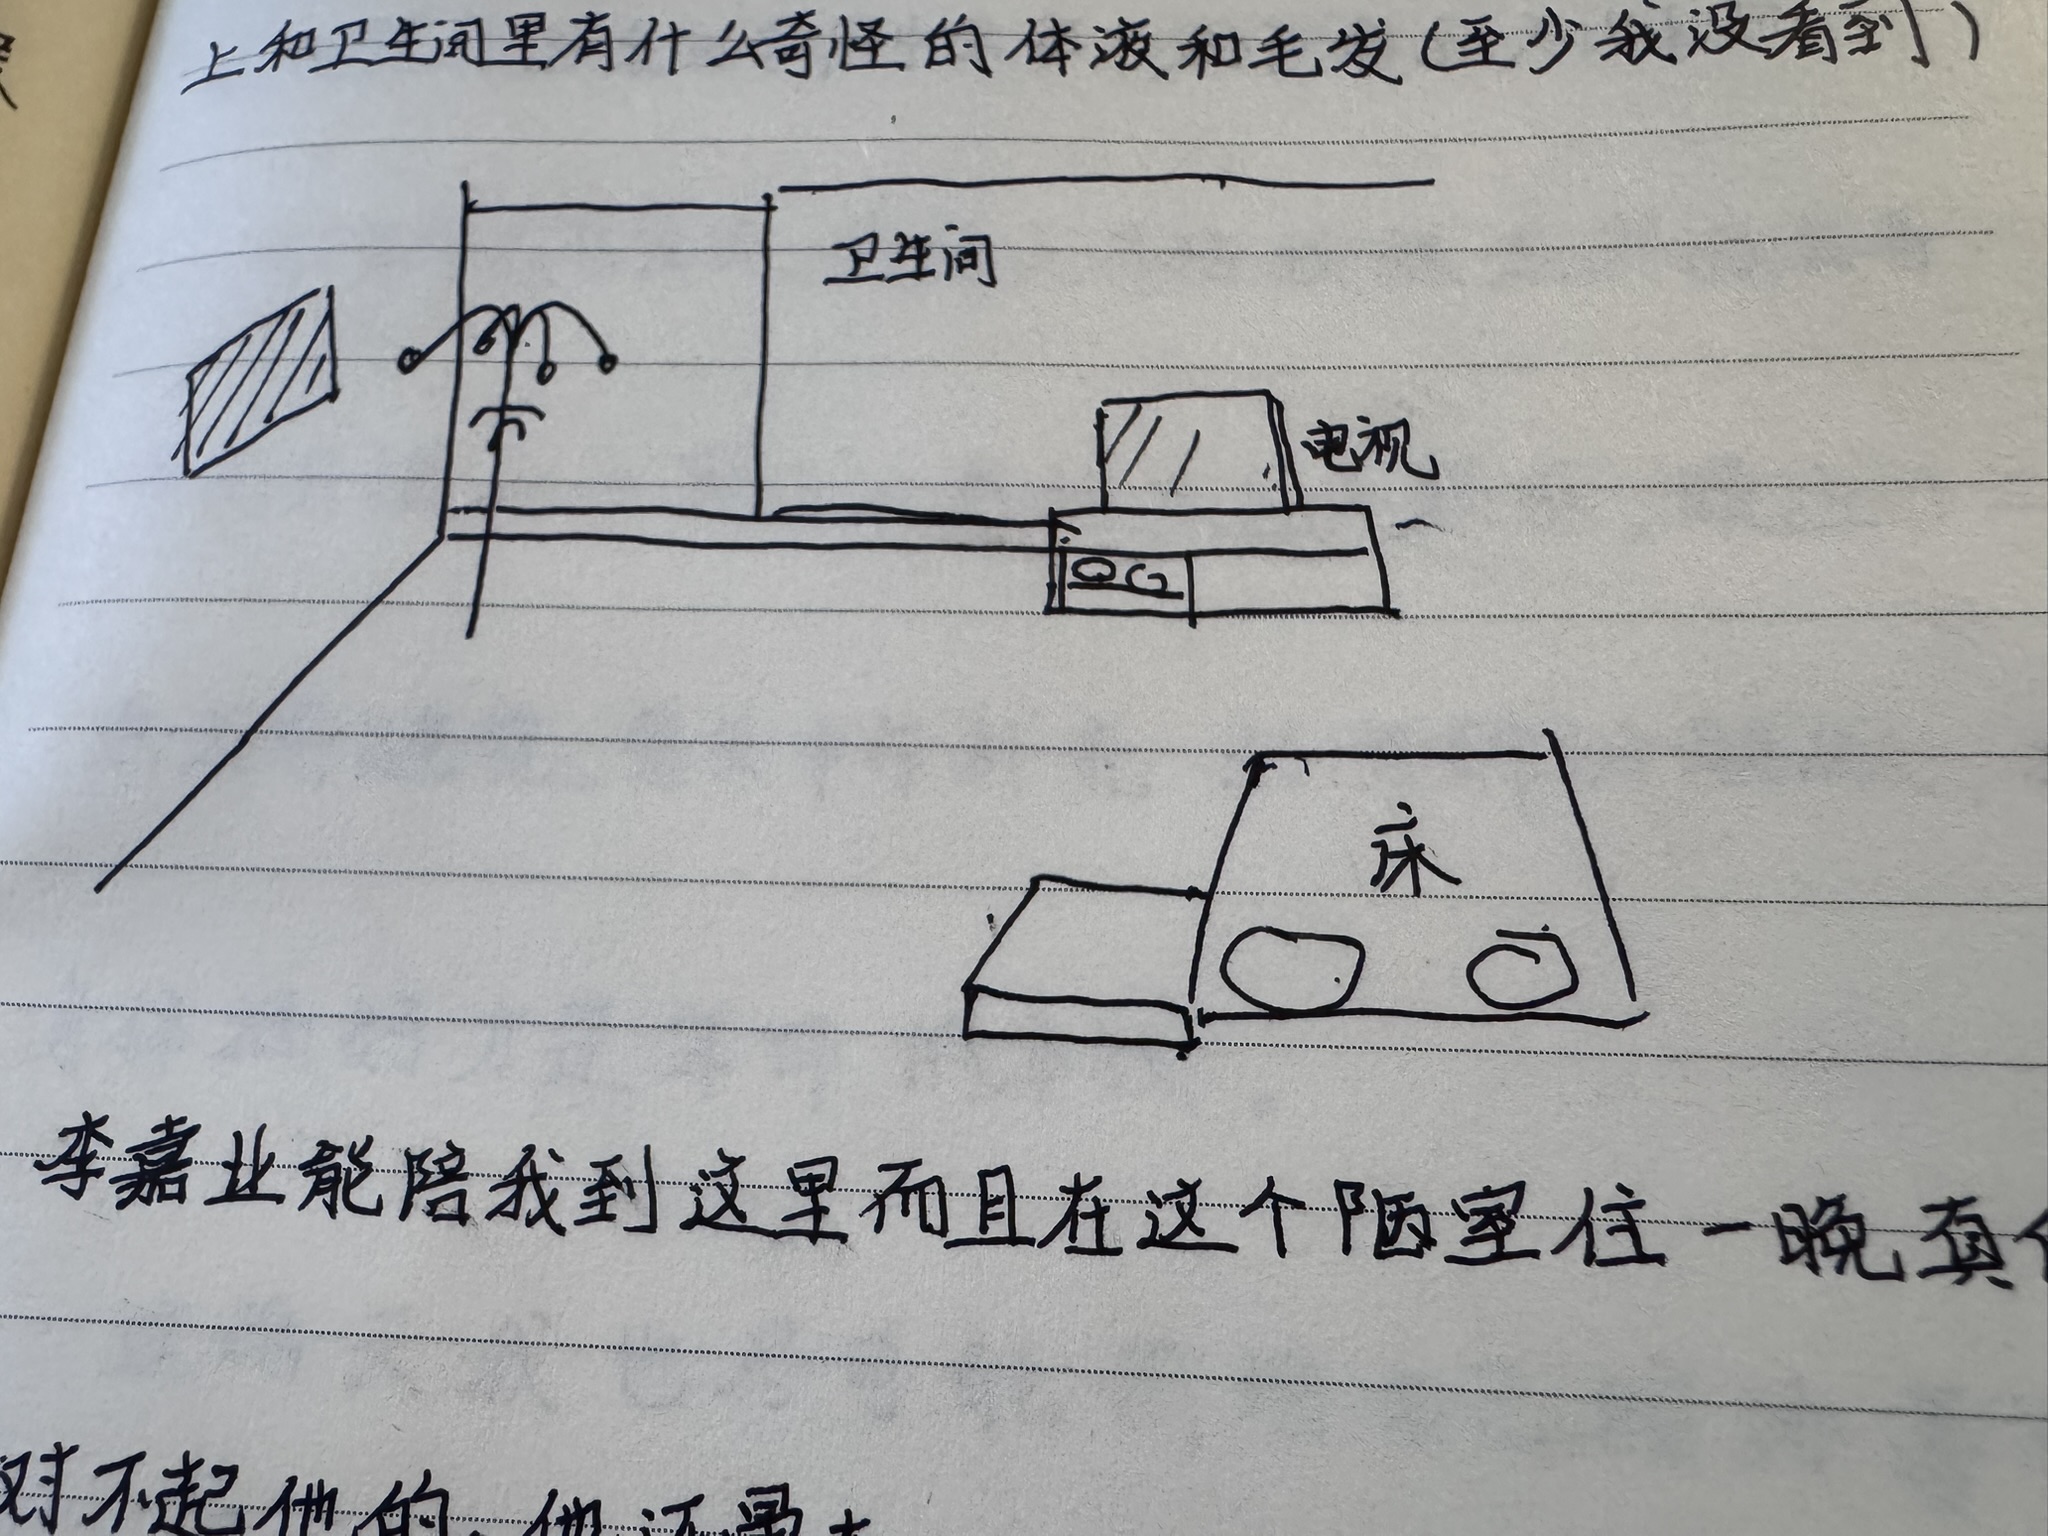 上和卫生间里有什么奇怪的体液和毛发(至少我没看到)
卫生间
电视
床
李嘉业能陪我到这里而且在这个陋室住一晚真
对不起他的,他还是